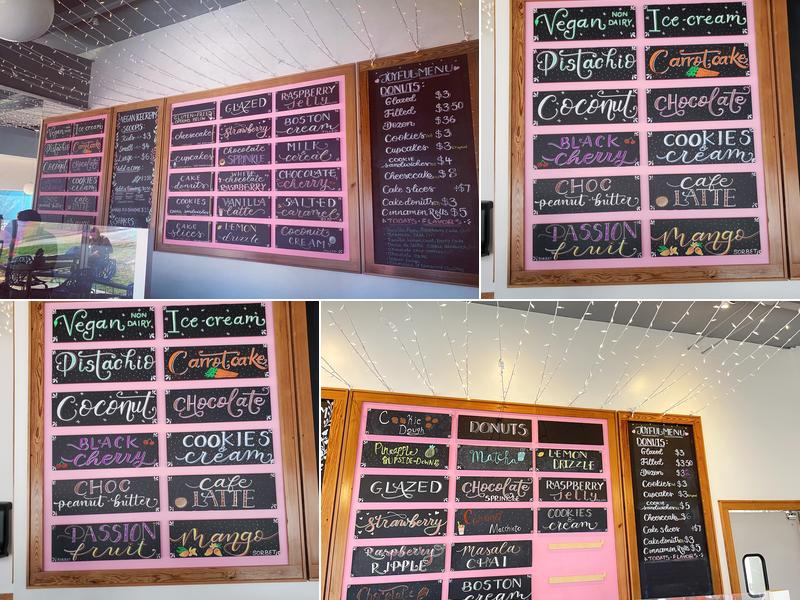 Vegan NON DAIRY
Ice-cream
Pistachio
Carrot cake
Coconut
Chocolate
BLACK cherry
COOKIES cream
VEGAN ICECREAM
SCOOPS:
Kids $3
Small
Large
GLAZED
RASPBERRY Jelly
cheesecake
Strawberry
BOSTON cream
cupcakes
Chocolate SPRINKLE
MILK & cereal
CAKE donuts
WHITE chocolate RASPBERRY
CHOCOLATE cherry
COOKIES
VANILLA latte
SALTED caramel
CAKE slices
LEMON drizzle
COCONUT CREAM
JOYFUL MENU
DONUTS:
Glazed $3
Filled $3.50
Dozen $36
Cookies $3
Cupcakes $3
COOKIE sandwiches $4
Cheesecake $8
Cake slices $7
Cake donuts $3
Cinnamon Rolls $5
TODAYS FLAVORS
Vegan NON DAIRY
Ice-cream
Pistachio
Carrot cake
Coconut
Chocolate
BLACK cherry
COOKIES & cream
CHOC peanut-butter
CAFE LATTE
PASSION fruit
Mango SORBET
Vegan NON DAIRY
Ice-cream
Pistachio
Carrot cake
Coconut
Chocolate
BLACK cherry
COOKIES & cream
CHOC peanut-butter
CAFE LATTE
PASSION fruit
Mango SORBET
Cookie Dough
DONUTS
Pineapple UPSIDE-DOWN
Matcha
LEMON DRIZZLE
GLAZED
CHOCOLATE SPRINKLE
RASPBERRY Jelly
Strawberry
Caramel Macchiato
COOKIES & cream
Raspberry RIPPLE
Masala CHAI
Chocolate
BOSTON cream
JOYFUL MENU
DONUTS:
Glazed $3
Filled $3.50
Dozen
Cookies $3
Cupcakes $3
COOKIE sandwiches $5
Cheesecake
Cake slices $7
Cake donuts $3
Cinnamon Rolls $5
TODAYS FLAVORS